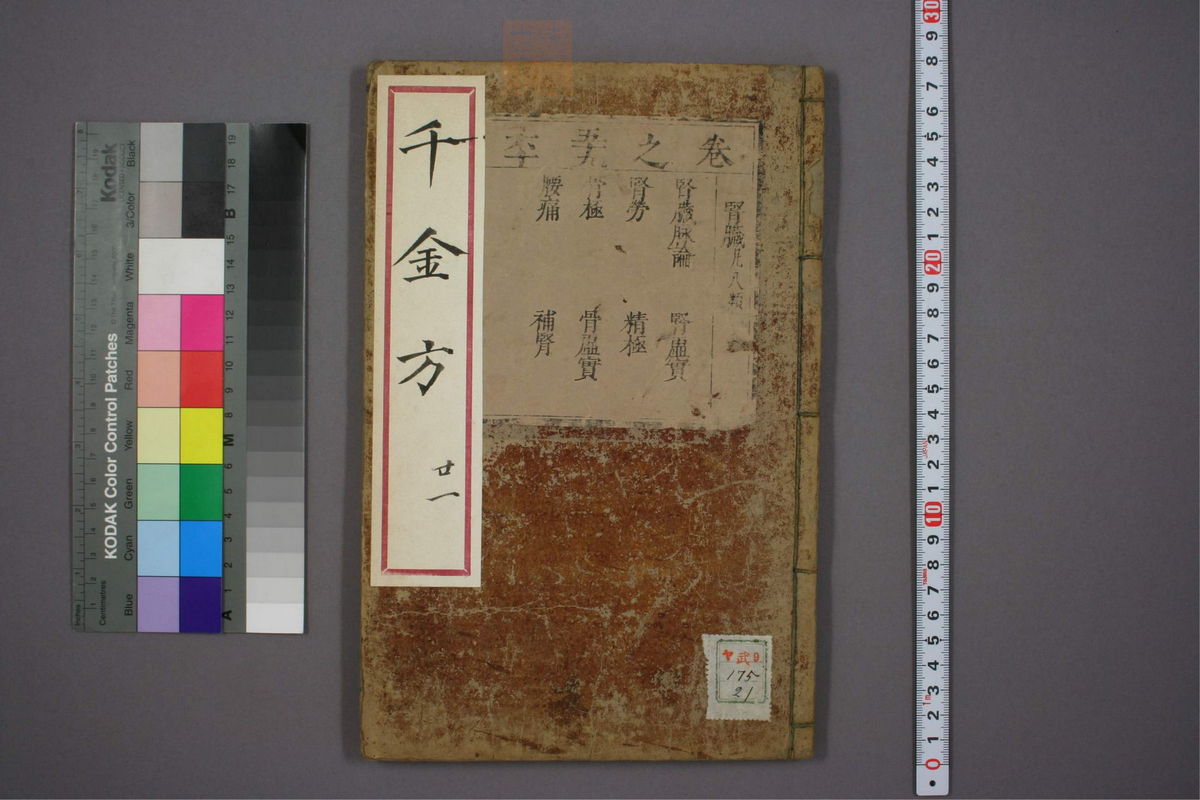 千金方
廿一
卷之五
腎臟凡八類
腎臟脉論
腎虛實
腎勞
精極
骨極
骨虛實
腰痛
補腎
175
21
KODAK Color Control Patches
Kodak
Inches
Centimetres
Blue
Cyan
Green
Yellow
Red
Magenta
White
3/Color
Black
A 1 2 3 4 5 6 M 8 9 10 11 12 13 14 15 B 17 18 19
30
20
10
0